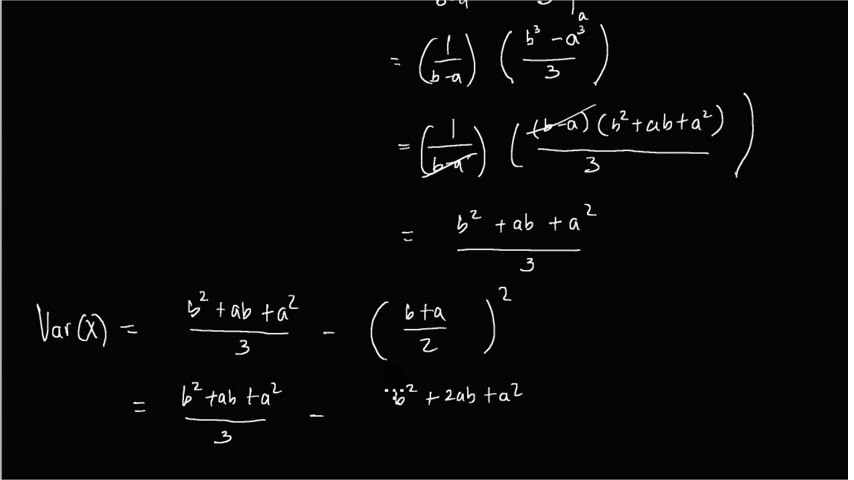 a
= (1/(b-a)) ((b³ - a³)/3)
= (1/(b-a)) ((b-a)(b² + ab + a²)/3)
= (b² + ab + a²)/3
Var(X) = (b² + ab + a²)/3 - ((b+a)/2)²
= (b² + ab + a²)/3 - b² + 2ab + a²